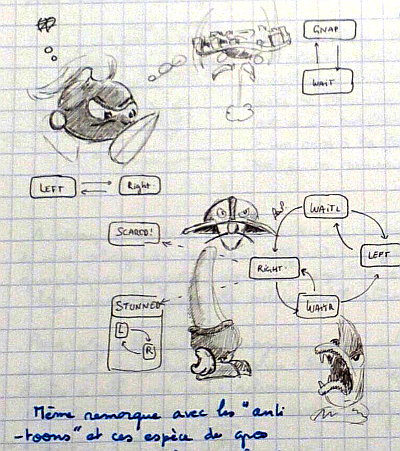 GNAP
WAIT
LEFT
Right
SCARED!
WAITL
LEFT
RIGHT
WAITR
STUNNED
L
R
Même remarque avec les "anti
-toons" et ces espèce de gros